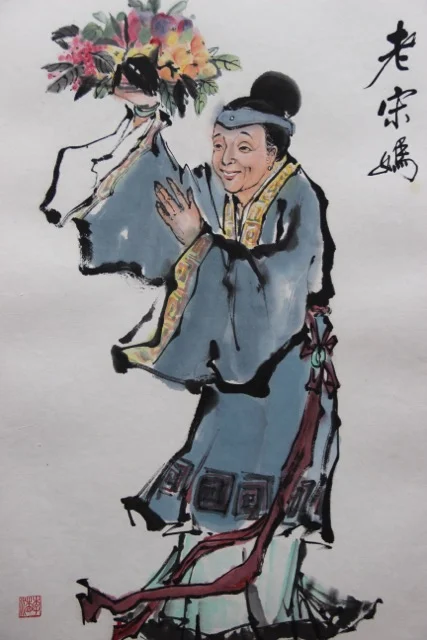 老宋媽